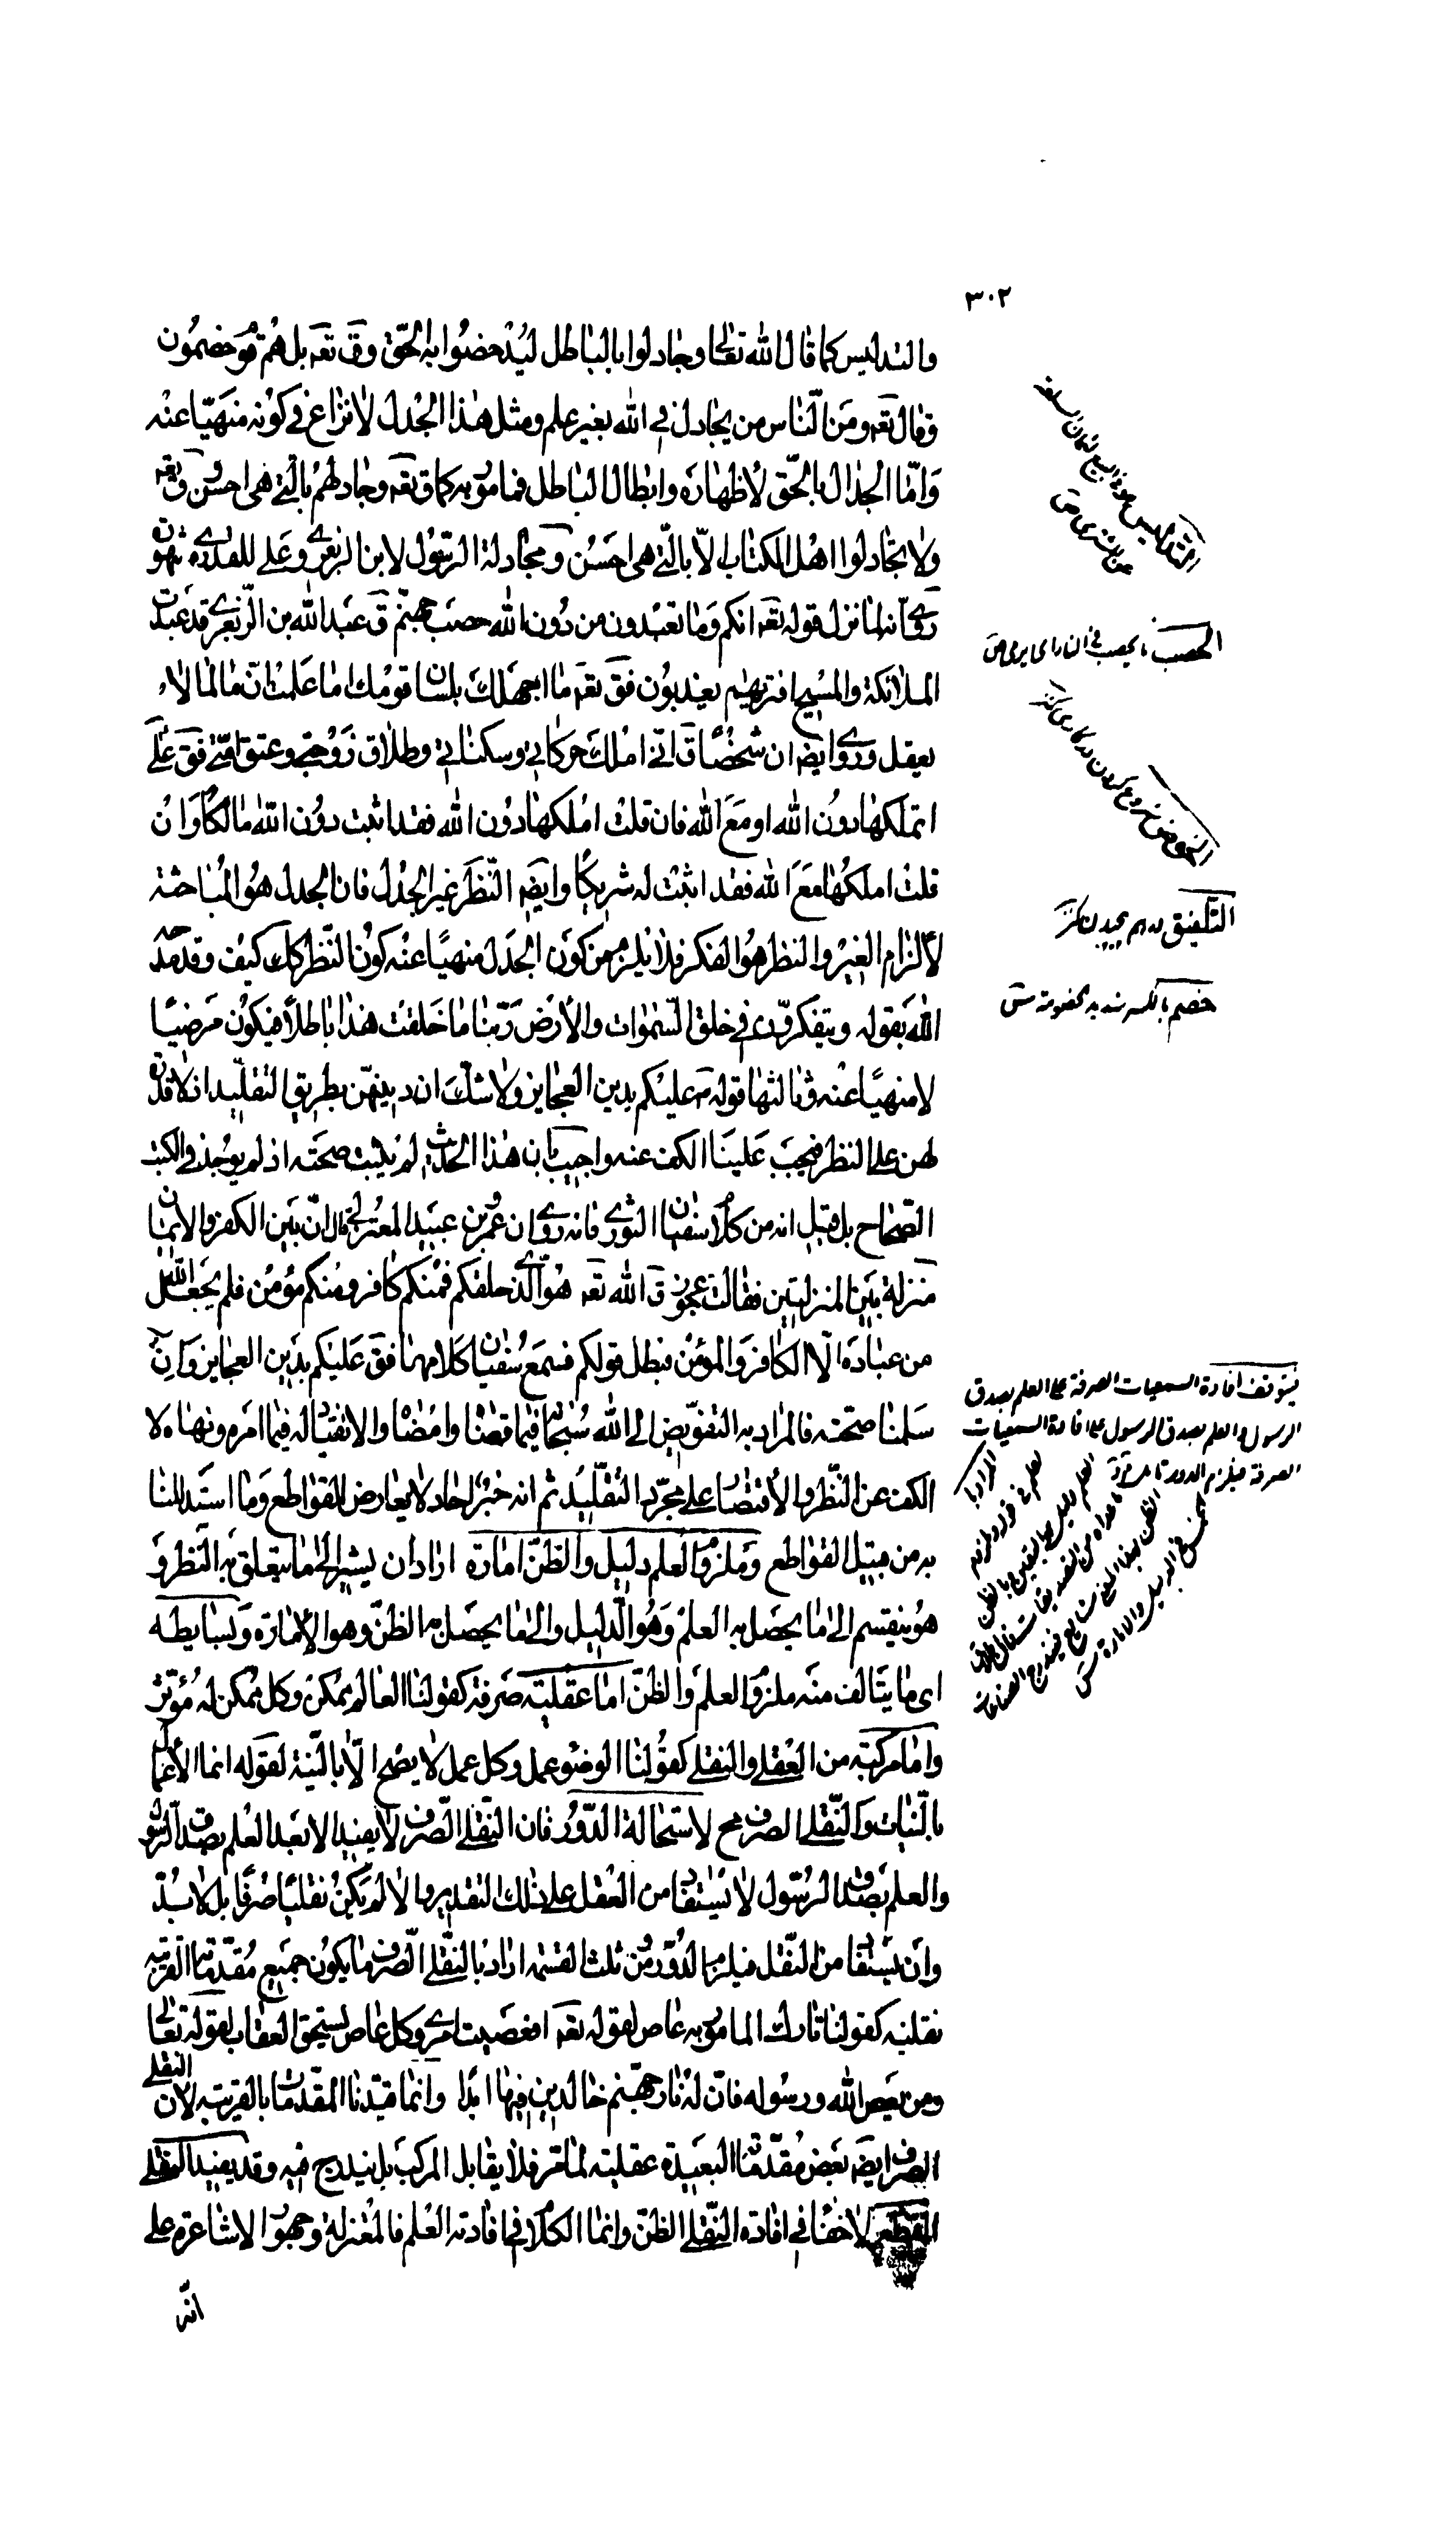 ٣٠٢
والتدليس كما قال الله تعالى وجادلوا بالباطل ليدحضوا به الحق وق تعه بل هم قوم خصمون
وقال تعه ومن الناس من يجادل في الله بغير علم ومثل هذا الجدل لا نزاع في كونه منهيا عنه
واما الجدال بالحق لاظهاره وابطال الباطل فمامور به كما ق تعه وجادلهم بالتي هي احسن وق تعه
ولا تجادلوا اهل الكتاب الا بالتي هي احسن ومجادلة الرسول لابن الزبعرى وعلى للقدرى مشهورة
روى انه لما نزل قوله تعه انكم وما تعبدون من دون الله حصب جهنم ق عبد الله بن الزبعرى قد عبدت
الملائكة والمسيح افتريهم يعذبون فق تعه ما اجهلك بلسان قومك اما علمت ان ما لما لا
يعقل وروى ايضه ان شخصا ق اني املك حركاتي وسكناتي وطلاق زوجتي وعتق امتي فق على
اتملكها دون الله او مع الله فان قلت املكها دون الله فقد اثبت دون الله مالكا وان
قلت املكها مع الله فقد اثبت له شريكا وايضه النظر غير الجدل فان الجدل هو المباحثة
لالزام الغير والنظر هو الفكر فلا يلزم من كون الجدل منهيا عنه كون النظر كك كيف وقد مدحه
الله بقوله ويتفكرون في خلق السموات والأرض ربنا ما خلقت هذا باطلا فيكون مرضيا
لا منهيا عنه وثالثها قوله عليكم بدين العجايز ولا شك ان دينهن بطريق التقليد اذ لا قدرة
لهن على النظر فيجب علينا الكف عنه واجيب بان هذا الحديث لم يثبت صحته اذ لم يوجد في الكتب
الصحاح بل قيل انه من كلام سفيان الثوري فانه روى ان عمرو بن عبيد المعتزلي قال ان بين الكفر والايمان
منزلة بين المنزلتين فقالت عجوز ق الله تعه هو الذي خلقكم فمنكم كافر ومنكم مؤمن فلم يجعل الله
من عباده الا الكافر والمؤمن فبطل قولكم فسمع سفيان كلامها فق عليكم بدين العجايز وان
سلمنا صحته فالمراد به التفويض الى الله سبحانه فيما قضاه وامضاه والانقياد له فيما امره ونهاه لا
الكف عن النظر والاقتصار على مجرد التقليد ثم انه خبر احاد لا يعارض القواطع وما استدللنا
به من قبيل القواطع وملزوم العلم دليل والظن امارة اراد ان يشير الى ما يتعلق به النظر و
هو ينقسم الى ما يحصل به العلم وهو الدليل والى ما يحصل به الظن وهو الامارة وبسايطه
اى ما يتالف منه ملزوم العلم والظن اما عقلية صرفة كقولنا العالم ممكن وكل ممكن له مؤثر
واما مركبة من العقلي والنقلي كقولنا الوضوء عمل وكل عمل لا يصح الا بالنية لقوله انما الأعمال
بالنيات والنقلي الصرف مح لاستحالة الدور فان النقلي الصرف لا يفيد الا بعد العلم بصدق الرسول
والعلم بصدق الرسول لا يستفاد من العقل على ذلك التقدير والا لم يكن نقليا صرفا بل لا بد
وان يستفاد من النقل فيلزم الدور ومن ثلث القسمة اراد بالنقلي الصرف ما يكون جميع مقدماته القريبة
نقلية كقولنا تارك المامور به عاص لقوله تعه افعصيت امري وكل عاص يستحق العقاب لقوله تعالى
ومن يعص الله ورسوله فان له نار جهنم خالدين فيها ابدا وانما قيدنا المقدمات بالقريبة لان النقلي
الصرف ايضه بعض مقدماته البعيدة عقلية لما مر فلا يقابل المركب بل يندرج فيه وقد يفيد النقلي
القطع لا خفاء في افادة النقلي الظن وانما الكلام في افادته العلم فالمعتزلة وجمهور الاشاعرة على
انه
الحصب
التلفيق
يتوقف افادة السمعيات الصرفة على العلم بصدق
الرسول والعلم بصدق الرسول على افادة السمعيات
الصرفة فيلزم الدور